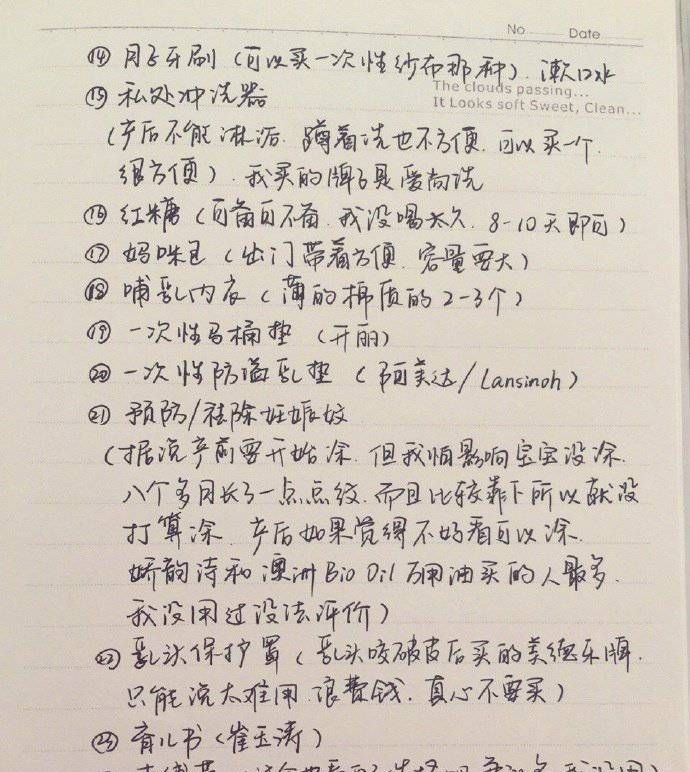 No Date
⑭ 月子牙刷（可以买一次性纱布那种）. 漱口水
The clouds passing...
It Looks soft Sweet, Clean...
⑮ 私处冲洗器
（产后不能淋浴. 蹲着洗也不方便. 可以买一个.
很方便）. 我买的牌子是爱尚洗
⑯ 红糖（可备可不备. 我没喝太久. 8-10天即可）
⑰ 妈咪包（出门带着方便. 容量要大）
⑱ 哺乳内衣（薄的棉质的2-3个）
⑲ 一次性马桶垫（开丽）
⑳ 一次性防溢乳垫（阿美达/Lansinoh）
㉑ 预防/祛除妊娠纹
（据说产前要开始涂. 但我怕影响宝宝没涂.
八个多月长了一点点纹. 而且比较靠下所以就没
打算涂. 产后如果觉得不好看可以涂.
娇韵诗和澳洲Bio Oil万用油买的人最多.
我没用过没法评价）
㉒ 乳头保护罩（乳头咬破皮后买的美德乐牌.
只能说太难用. 浪费钱. 真心不要买）
㉓ 育儿书（崔玉涛）